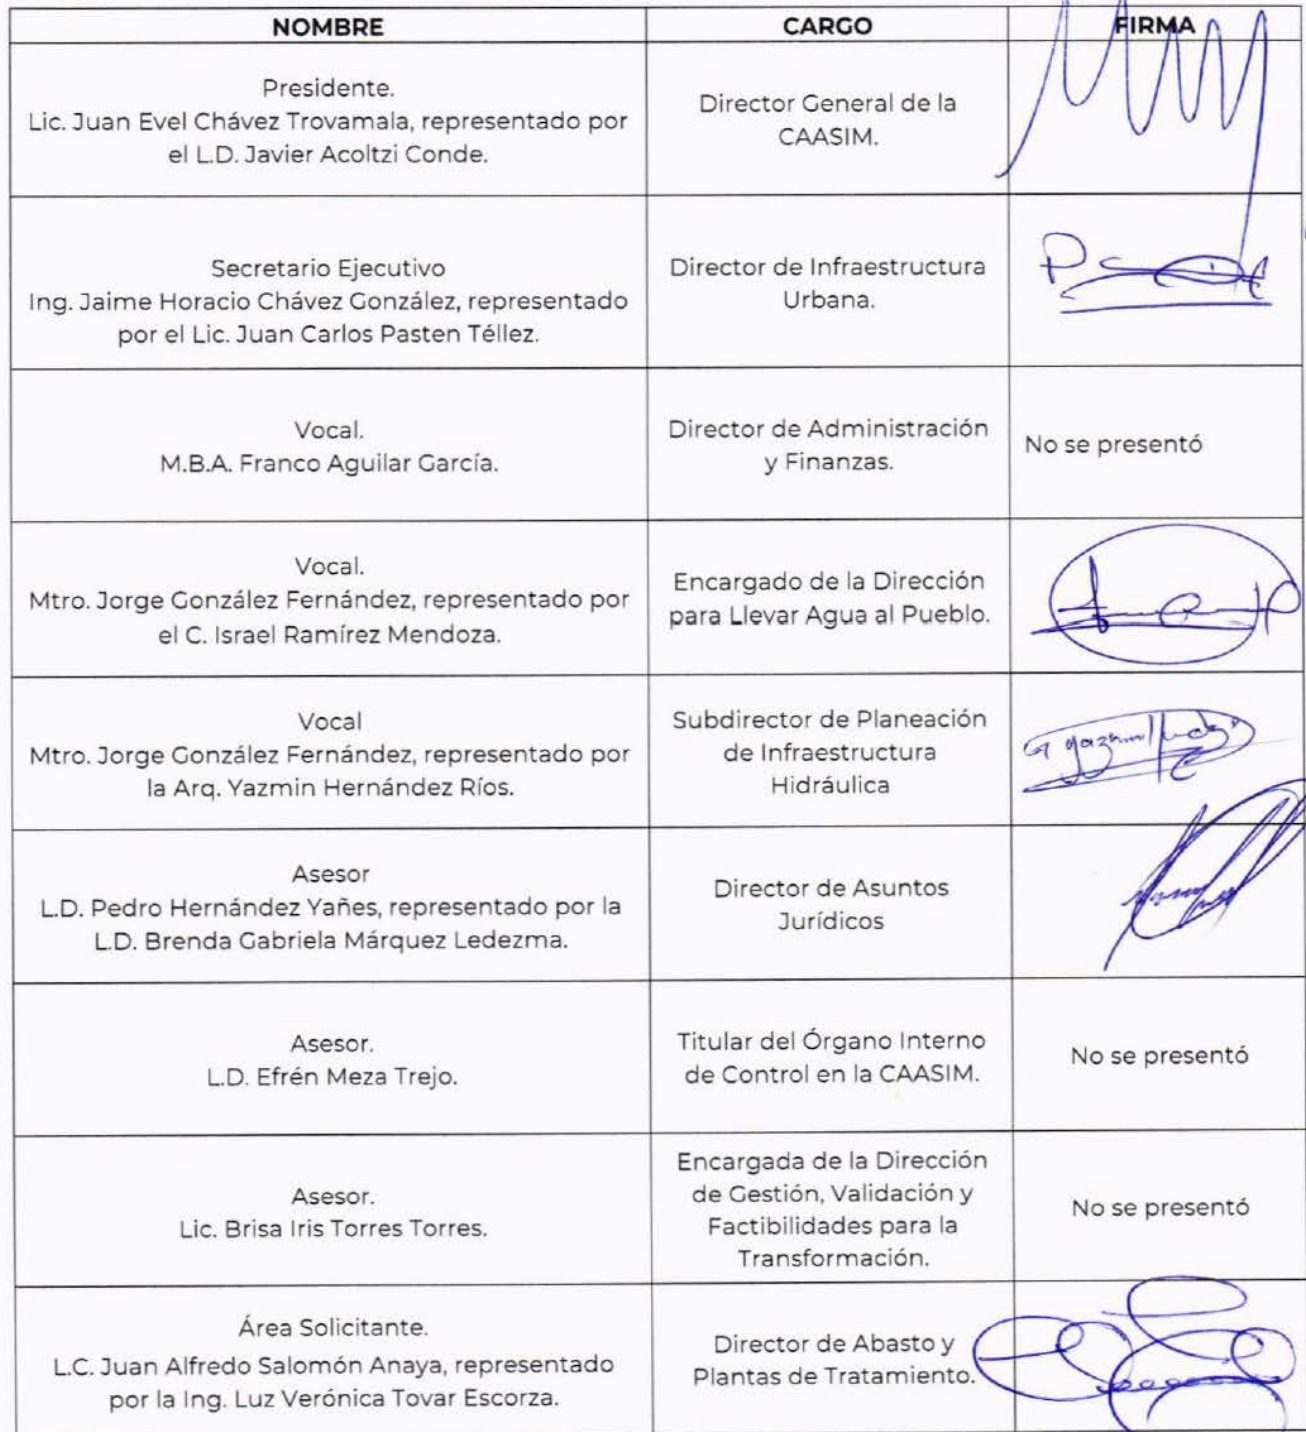 NOMBRE CARGO FIRMA
Presidente.
Lic. Juan Evel Chávez Trovamala, representado por
el L.D. Javier Acoltzi Conde.
Director General de la
CAASIM.
Secretario Ejecutivo
Ing. Jaime Horacio Chávez González, representado
por el Lic. Juan Carlos Pasten Téllez.
Director de Infraestructura
Urbana.
Vocal.
M.B.A. Franco Aguilar García.
Director de Administración
y Finanzas.
No se presentó
Vocal.
Mtro. Jorge González Fernández, representado por
el C. Israel Ramírez Mendoza.
Encargado de la Dirección
para Llevar Agua al Pueblo.
Vocal
Mtro. Jorge González Fernández, representado por
la Arq. Yazmin Hernández Ríos.
Subdirector de Planeación
de Infraestructura
Hidráulica
Asesor
L.D. Pedro Hernández Yañes, representado por la
L.D. Brenda Gabriela Márquez Ledezma.
Director de Asuntos
Jurídicos
Asesor.
L.D. Efrén Meza Trejo.
Titular del Órgano Interno
de Control en la CAASIM.
No se presentó
Asesor.
Lic. Brisa Iris Torres Torres.
Encargada de la Dirección
de Gestión, Validación y
Factibilidades para la
Transformación.
No se presentó
Área Solicitante.
L.C. Juan Alfredo Salomón Anaya, representado
por la Ing. Luz Verónica Tovar Escorza.
Director de Abasto y
Plantas de Tratamiento.